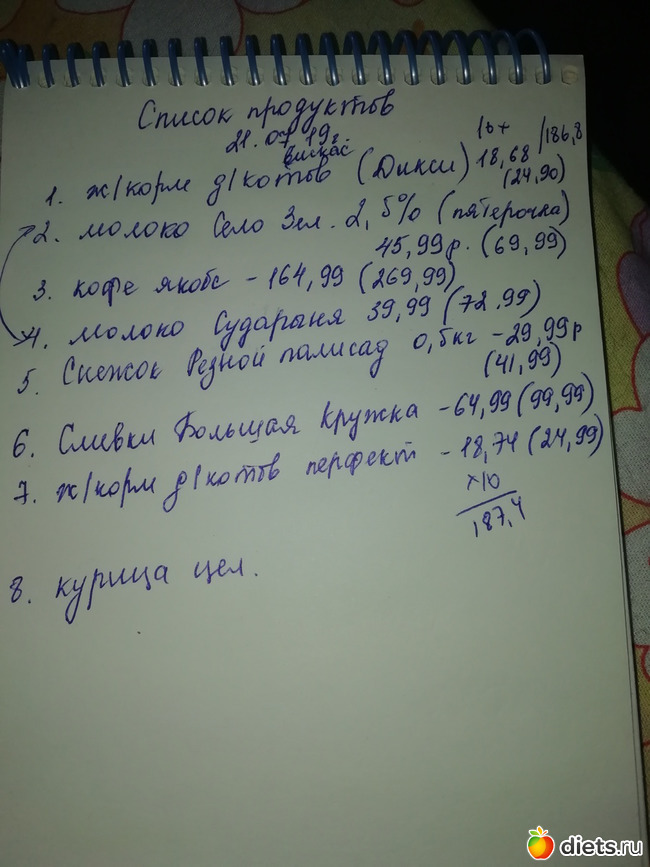 Список продуктов
21.07.19г.
вискас
1. ж/корм д/котов (Дикси) 18,68 /186,8
(24,90)
2. молоко Село Зел. 2,5% (пятерочка)
45,99р. (69,99)
3. кофе якобс - 164,99 (269,99)
4. молоко Сударыня 39,99 (72.99)
5. Снежок Резной палисад 0,5кг - 29,99р
(41,99)
6. Сливки Большая Кружка - 64,99 (99,99)
7. ж/корм д/котов перфект - 18,74 (24,99)
х10
187,4
8. курица цел.
diets.ru